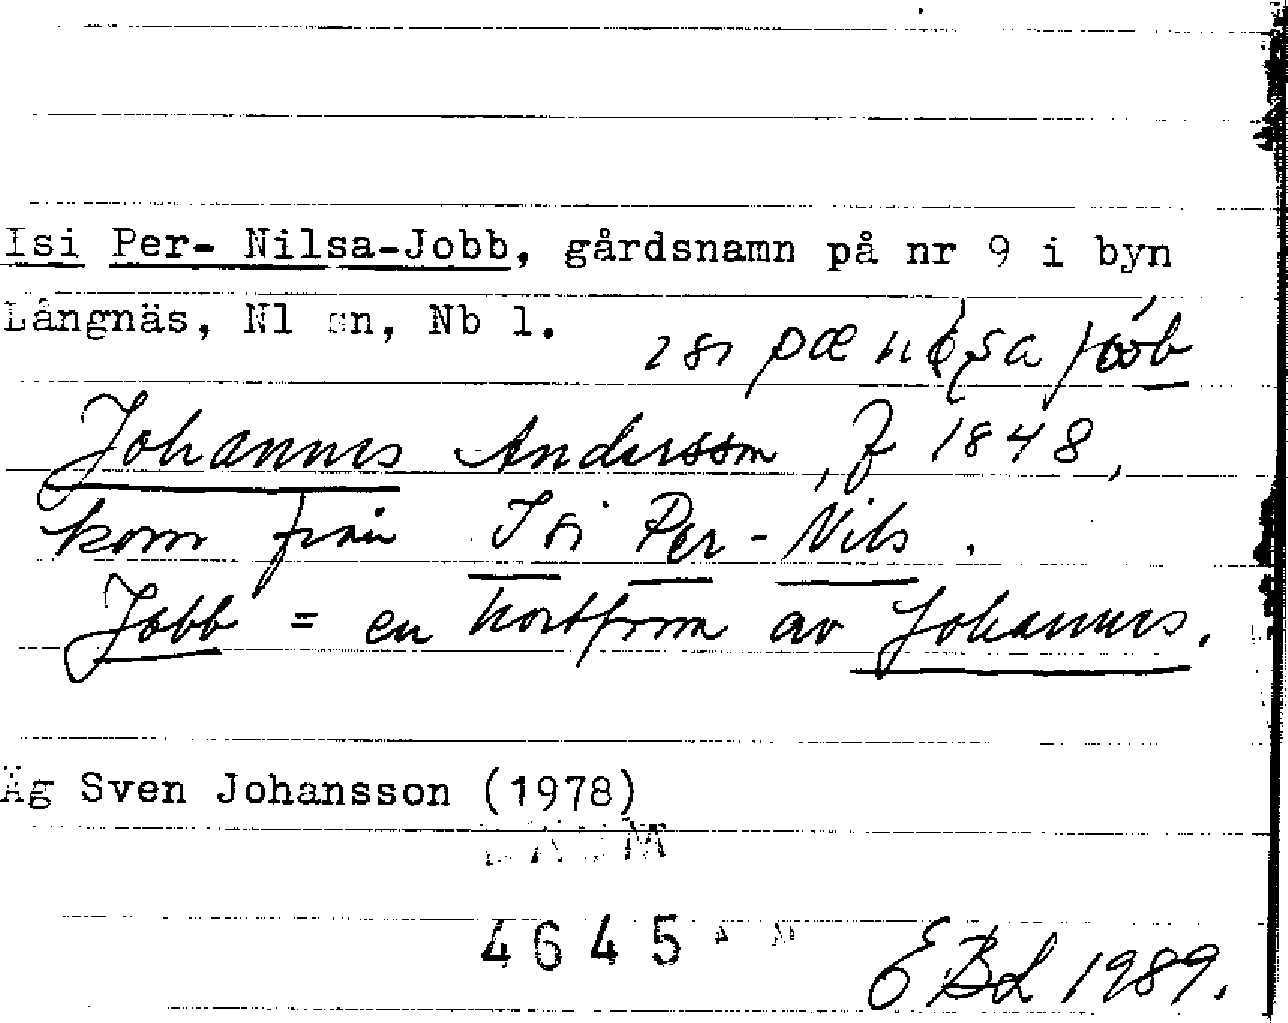 Isi Per- Nilsa-Jobb, gårdsnamn på nr 9 i byn
Långnäs, Nl sn, Nb l.
Johannes Andersson, f 1848,
kom från Isi Per-Nils.
Jobb = en kortform av Johannes.
Äg Sven Johansson (1978)
4645
EBL 1989.